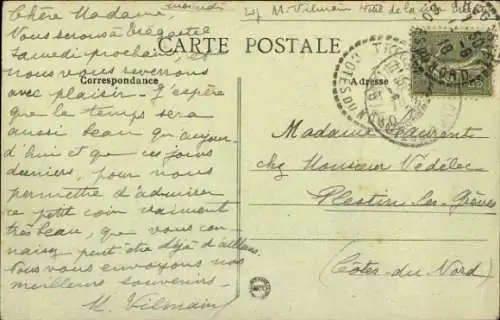 mercredi
chez M. Vilmain Hôtel de la
CARTE POSTALE
Correspondance
Adresse
Chère Madame,
Nous serons à Trégastel
samedi prochain, et
nous vous reverrons
avec plaisir. J'espère
que le temps sera
aussi beau qu'aujour-
d'hui et que ces jours
derniers, pour nous
permettre d'admirer
ce petit coin vraiment
très beau, que vous con-
naissez peut-être déjà d'ailleurs.
Nous vous envoyons nos
meilleurs souvenirs.
M. Vilmain
Madame Laurent
chez Monsieur Védélec
Plestin-les-Grèves
(Côtes-du-Nord)
COTES DU NORD